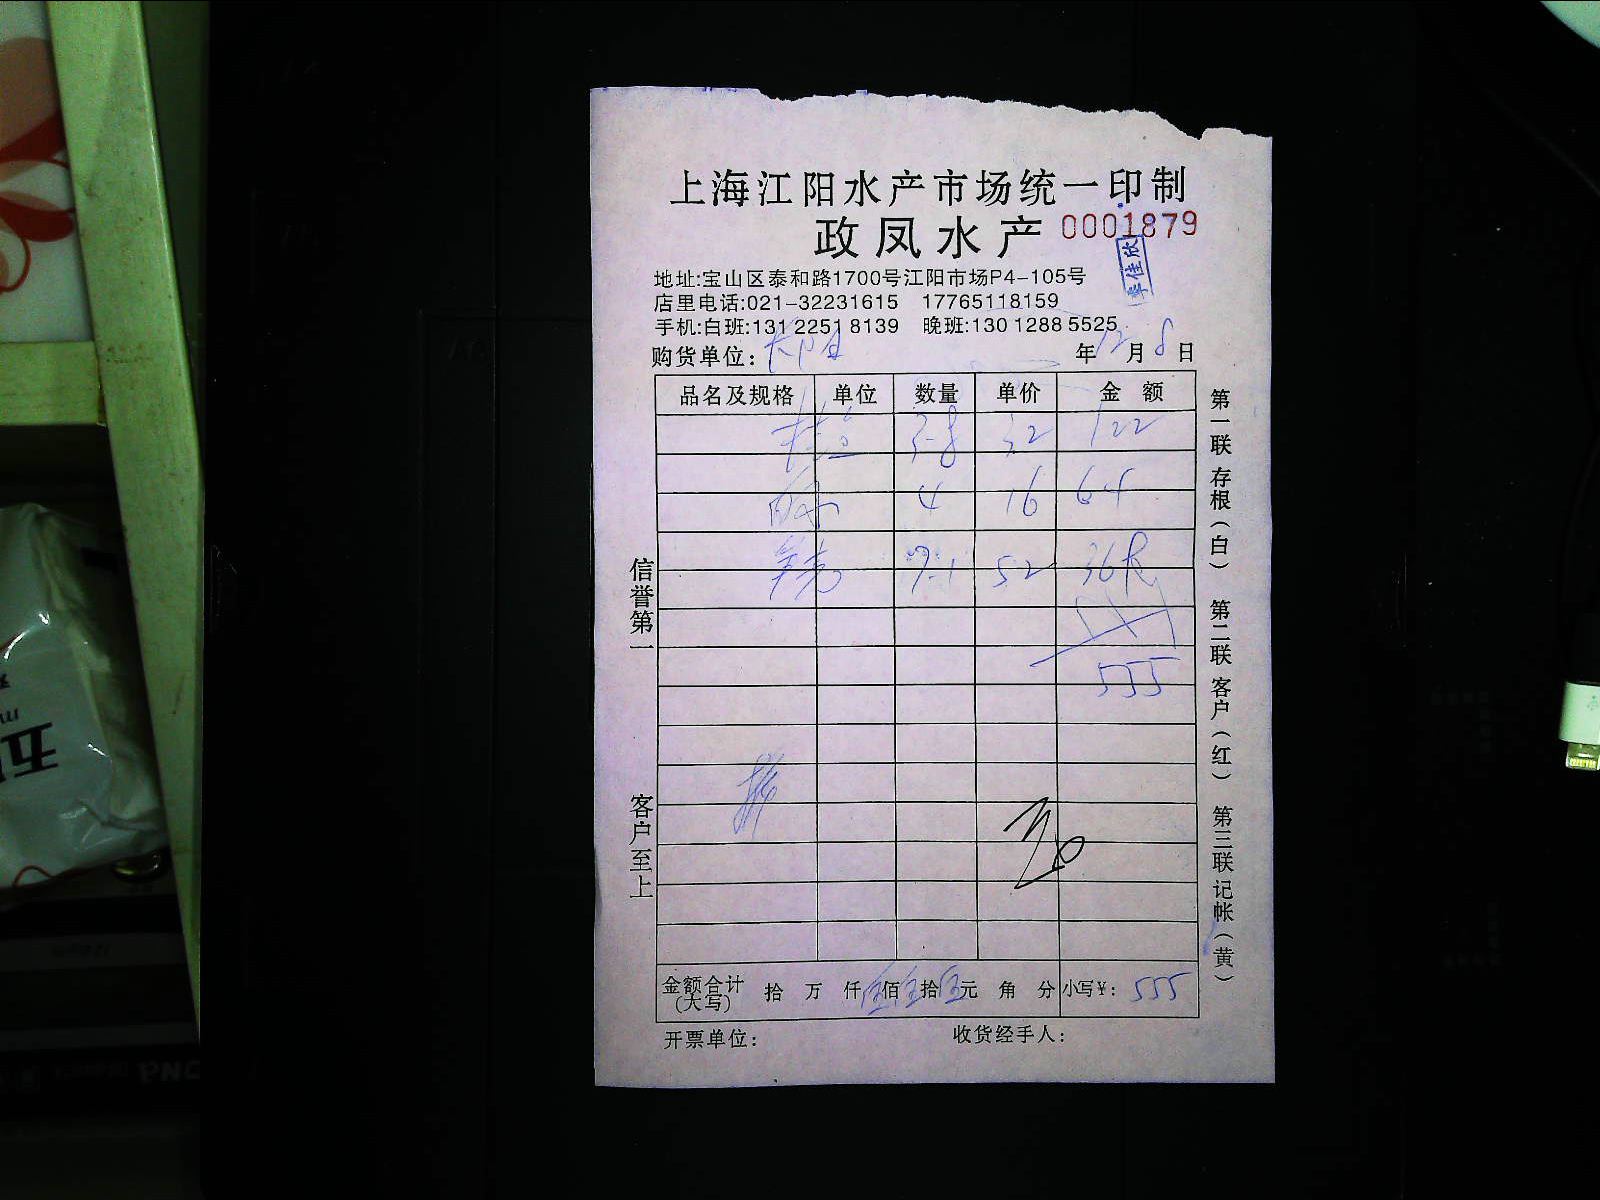 上海江阳水产市场统一印制
政凤水产 0001879
李佳欣
地址:宝山区泰和路1700号江阳市场P4-105号
店里电话:021-32231615 17765118159
手机:白班:131 2251 8139 晚班:130 1288 5525
购货单位: 年 12 月 8 日
品名及规格 单位 数量 单价 金额
3-8 32 122
4 16 64
52
555
金额合计(大写) 拾 万 仟 伍 佰 伍 拾 伍 元 角 分 小写¥: 555
开票单位: 收货经手人:
信誉第一
客户至上
第一联 存根(白)
第二联 客户(红)
第三联 记帐(黄)
五